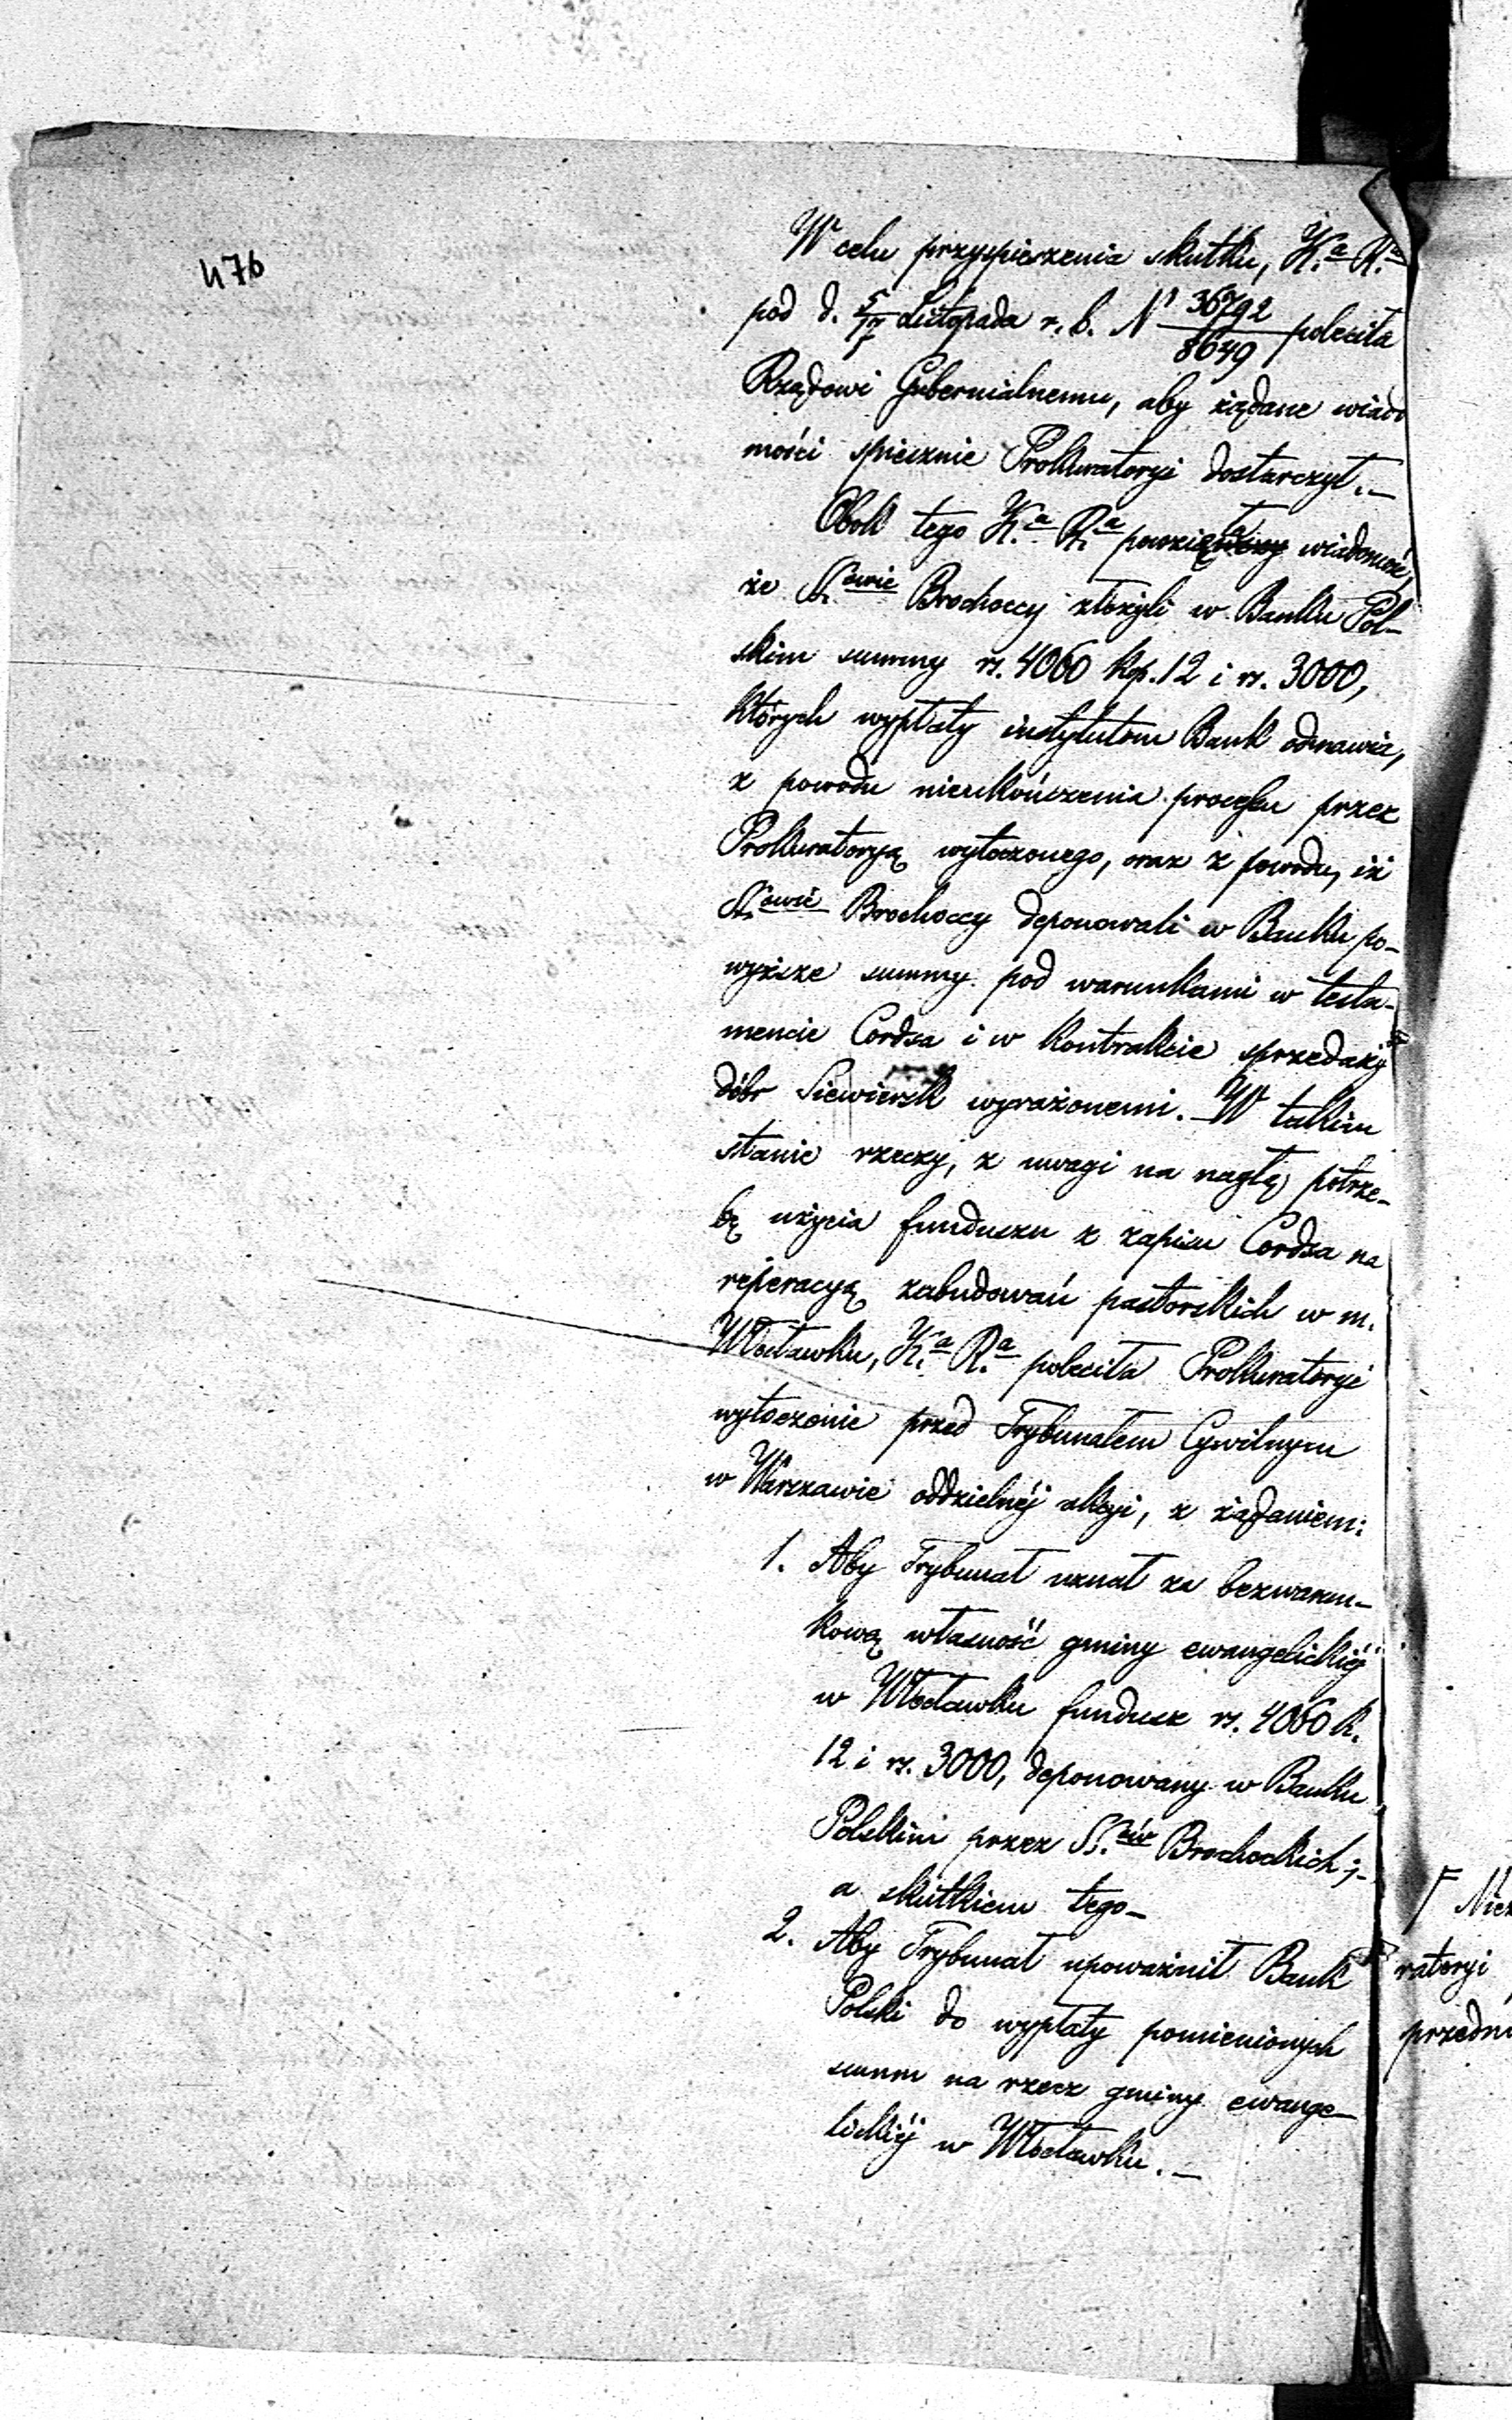 476
W celu przyspieszenia skutku, K.a R.a
pod d. 5/17 Listopada r. b. N 36792/8649 poleciła
Rządowi Gubernialnemu, aby żądane wiado
mości spiesznie Prokuratoryi dostarczył. —
Obok tego K.a R.a powzięła wiadomość,
że S.owie Brochoccy złożyli w Banku Pol-
skim summy rs. 4060 kop. 12 i rs. 3000,
których wypłaty instytutom Bank odmawia,
z powodu nieukończenia processu przez
Prokuratoryą wytoczonego, oraz z powodu, iż
S.owie Brochoccy deponowali w Banku po-
wyższe summy pod warunkami w testa-
mencie Cordsa i w kontrakcie sprzedaży
dóbr Siewiersk wyrażonemi. — W takim
stanie rzeczy, z uwagi na nagłą potrze-
bę użycia funduszu z zapisu Cordsa na
reperacyą zabudowań pastorskich w m.
Włocławku, K.a R.a poleciła Prokuratoryi
wytoczenie przed Trybunałem Cywilnym
w Warszawie oddzielnéj akcyi, z żądaniem:
1. Aby Trybunał uznał za bezwarun-
kową własność gminy ewangelickiéj
w Włocławku fundusz rs. 4060 k.
12 i rs. 3000, deponowany w Banku
Polskim przez SS.ów Brochockich; —
a skutkiem tego —
2. Aby Trybunał upoważnił Bank
Polski do wypłaty pomienionych
summ na rzecz gminy ewange-
lickiéj w Włocławku. —
ratoryi